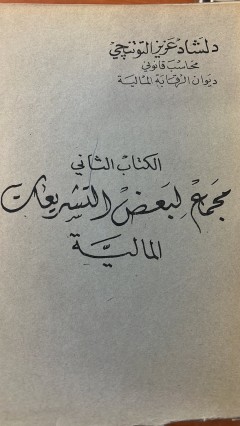 دلشاد عزيز التوتنچي
محاسب قانوني
ديوان الرقابة المالية
الكتاب الثاني
مجمع لبعض التشريعات
المالية